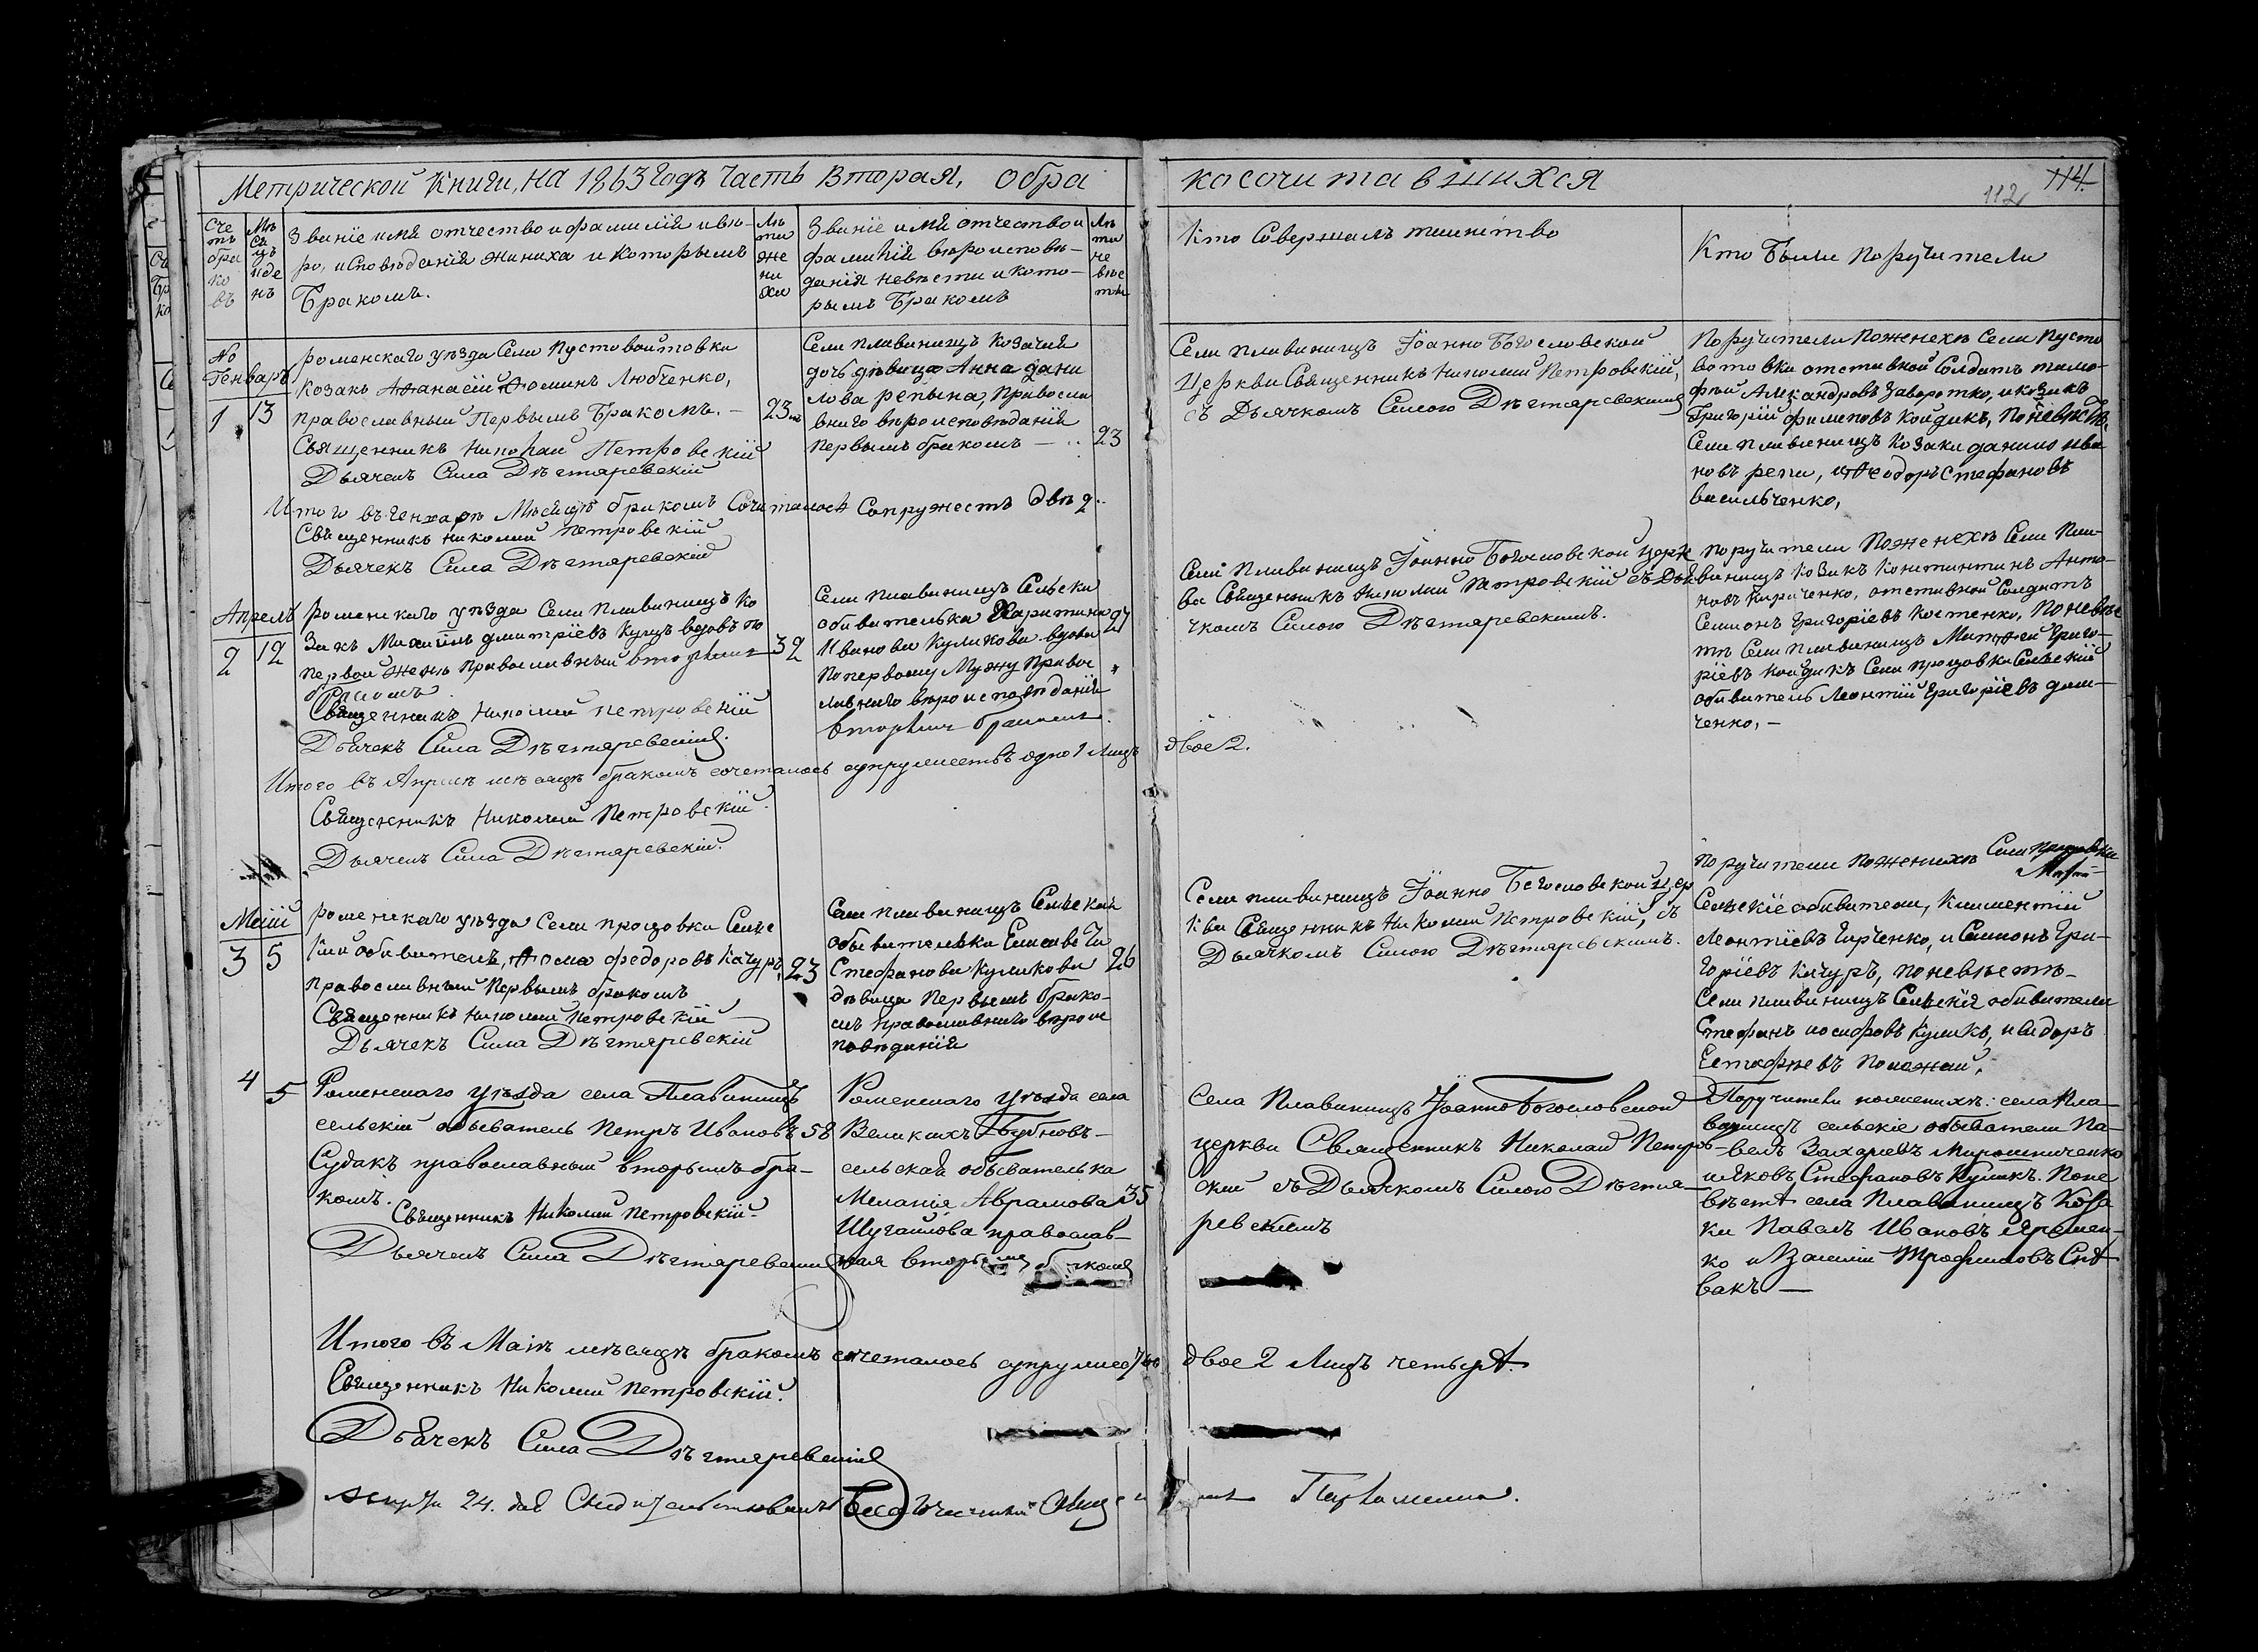 Метрической Книги, на 1863 Годъ Часть Вторая, обра
косочитавшихся
112 114.
Сче
тъ
бра
ко
въ
Мѣ
Ся
цъ
иде
нъ
Званіе имя отчество и фамилія и вѣ-
ро, исповѣданія жиниха и которымъ
Бракомъ.
Лѣ
та
же
ни
ха
Званіе имя отчество и
фамилія вѣроисповѣ-
данія невѣсти и кото-
рымъ Бракомъ
Лѣ
та
не
вѣс
ты
Кто Совершалъ таинство
Кто Были Поручители
No
Генваръ
1 13
роменскаго уѣзда Села Пустовойтовки
Козакъ Афанасій Фоминъ Любченко,
православный Первымъ Бракомъ. –
Священникъ Николай Петровскій
Дьячекъ Сила Дѣгтяревскій
23
Села плавинищъ Козачая
дочь дѣвица Анна дани
лова репына, Правосла
внаго вѣроисповѣданія
первымъ бракомъ –
23
Села плавинищъ Іоанно Богословской
Церкви Священникъ Николай Петровскій,
съ Дьячкомъ Силою Дѣгтяревскимъ
Поручители Поженехѣ Села Пусто
вотовки отставной Солдатъ тимо-
фѣй Александровъ Заворотко, и козакъ
Григорій филиповъ Койдакъ, Поневѣстѣ,
Села плавинищъ Козаки данило ива
новъ репа, и Феодоръ Стефановъ
васильченко,
Итого въ Генварѣ Мѣсяцѣ бракомъ Сочиталось Сопружествъ двѣ 2.
Священникъ Николай Петровскій
Дьячекъ Сила Дѣгтяревскій
Апрелъ
2 12
роменскаго уѣзда Села плавинищъ Ко
Закъ Михаилъ дмитріевъ Куцъ вдовъ по
первой женѣ православный вторымъ
бракомъ
Священникъ Николай Петровскій
Дьячекъ Сила Дѣгтяревскій.
32
Села плавинищъ Сельска
обивателька Харитина
Иванова Куликова вдова
Попервому Мужу Правос
лавнаго вѣроисповѣданія
вторымъ бракомъ.
27
Села Плавинищъ Іоанно Богословской церк
ви Священникъ Николай Петровскій съ Дья
чкомъ Силою Дѣгтяревскимъ.
поручители Поженехѣ Села Пла-
винищъ Козакъ Константинъ Анто-
новъ Кириченко, отставной Солдатъ
Семионъ Григоріевъ Костенко, Поневѣс
тѣ Села плавинищъ Матфей Григо-
ріевъ Койдакъ Села процовки Селескій
обиватель Леонтій Григоріевъ дям-
ченко, –
Итого въ Апрелѣ мѣсяцѣ бракомъ сочеталось супружествъ одно 1 Лицъ двое 2.
Священникъ Николай Петровскій
Дьячекъ Сила Дѣгтяревскій.
Маій
3 5
роменскаго уѣзда Села процовки Селе
кій обиватель, Фома федоровъ Качуръ,
православный Первымъ бракомъ
Священникъ Николай Петровскій
Дьячекъ Сила Дѣгтяревскій
23
Села плавинищъ Селеская
обывателька Елисавета
Стефанова Куликова
дѣвица Первымъ брако-
мъ православнаго вѣроис
повѣданія
26
Села плавинищъ Іоанно Богословской Цер
кви Священникъ Николай Петровскій, съ
Дьячкомъ Силою Дѣгтяревскимъ.
поручители Поженихѣ Села процовки
Селескіе обиватели, Климентій
Леонтіевъ Гирченко, и Семионъ Гри-
горіевъ Качуръ, поневѣстѣ-
Села плавинищъ Селескія обиватели
Стефанъ иосифовъ Куликъ, и Сидоръ
Естафіевъ Положай.
4 5
Роменскаго уѣзда села Плавинищъ
сельскій обыватель Петръ Ивановъ
Судакъ православный вторымъ бра-
комъ.
Священникъ Николай Петровскій
Дьячекъ Сила Дѣгтяревскій
58
Роменскаго уѣзда села
Великихъ Бубновъ-
сельская обывателька
Меланія Аврамова
Шугайлова православ-
ная вторымъ бракомъ
35
Села Плавинищъ Іоанно Богословской
церкви Священникъ Николай Петров-
скій съ Дьячкомъ Силою Дѣгтя-
ревскимъ
Поручители поженихѣ: села Пла-
винищъ сельскіе обыватели Па-
велъ Захаріевъ Мирошниченко
и Яковъ Стефановъ Куликъ. Поне
вѣстѣ села Плавинищъ Коза
ки Павелъ Ивановъ Яремен-
ко и Василій Трофимовъ Спѣ-
вакъ –
Итого въ Маіѣ мѣсяцѣ бракомъ сочеталось супружествъ двое 2 Лицъ четыре.
Священникъ Николай Петровскій.
Дьячекъ Сила Дѣгтяревскій
24. дня Свидѣтельствовалъ Благочинный